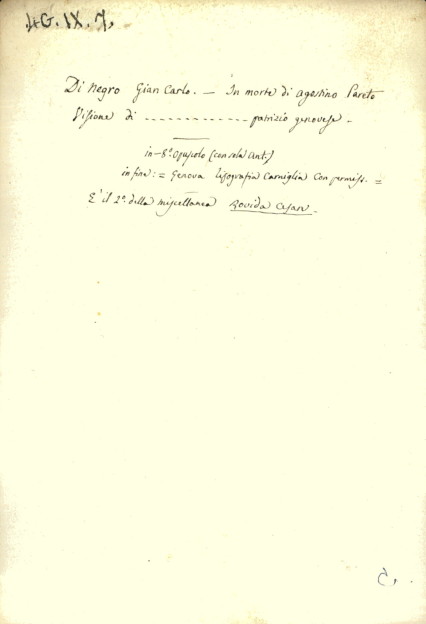 4G. IX. 7.
Di Negro Gian Carlo. — In morte di Agostino Pareto
Visione di ------------- patrizio genovese.
in-8.º opuscolo (con sola ant.)
in fine: = Genova tipografia Carniglia con permiss. =
È il 2º. della miscellanea Rovida Cesare.